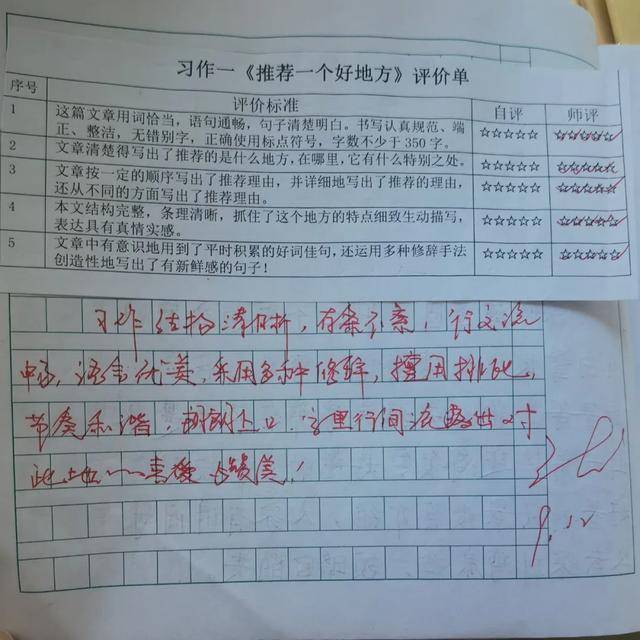 习作一《推荐一个好地方》评价单
序号 评价标准 自评 师评
1 这篇文章用词恰当，语句通畅，句子清楚明白。书写认真规范、端
正、整洁，无错别字，正确使用标点符号，字数不少于350字。 ☆☆☆☆☆ ☆☆☆☆☆
2 文章清楚得写出了推荐的是什么地方,在哪里,它有什么特别之处。 ☆☆☆☆☆ ☆☆☆☆☆
3 文章按一定的顺序写出了推荐理由，并详细地写出了推荐的理由，
还从不同的方面写出了推荐理由。 ☆☆☆☆☆ ☆☆☆☆☆
4 本文结构完整，条理清晰，抓住了这个地方的特点细致生动描写，
表达具有真情实感。 ☆☆☆☆☆ ☆☆☆☆☆
5 文章中有意识地用到了平时积累的好词佳句，还运用多种修辞手法
创造性地写出了有新鲜感的句子！ ☆☆☆☆☆ ☆☆☆☆☆
习作结构清晰，有条不紊，行文流
畅，语言优美，采用多种修辞，擅用排比，
节奏和谐，朗朗上口。字里行间流露出对
此地的喜爱与赞美！
9.12